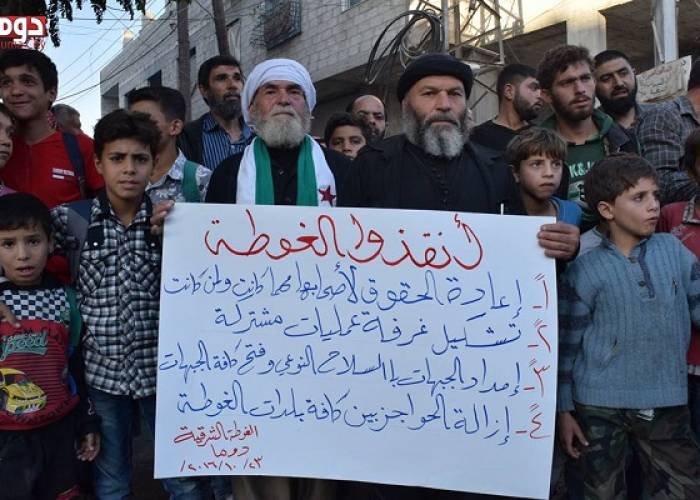 دوما
أنقذوا الغوطة
١- إعادة الحقوق لأصحابها مهما كانت ولمن كانت
٢- تشكيل غرفة عمليات مشتركة
٣- إمداد الجبهات بالسلاح النوعي وفتح كافة الجبهات
٤- إزالة الحواجز بين كافة بلدات الغوطة
الغوطة الشرقية
دوما
٢٠١٦/١٠/٢٣
Speed